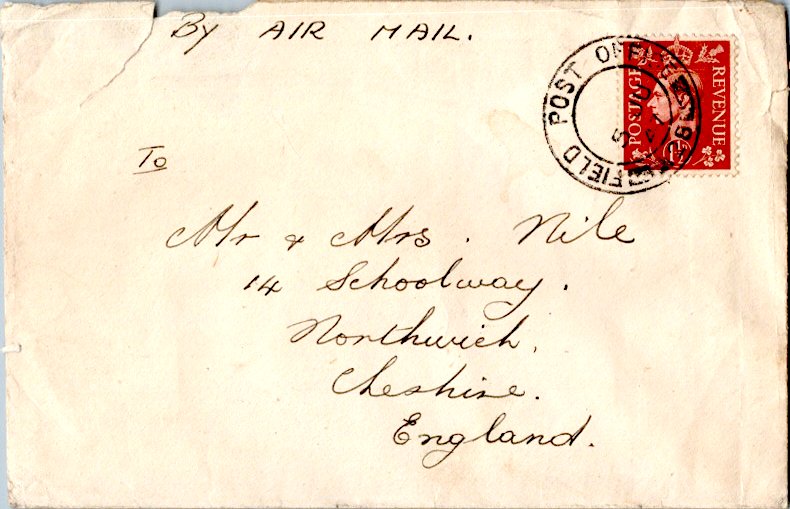 By AIR MAIL.
FIELD POST OFFICE
POSTAGE REVENUE
To
Mr & Mrs. Nile
14 Schoolway.
Northwich,
Cheshire.
England.